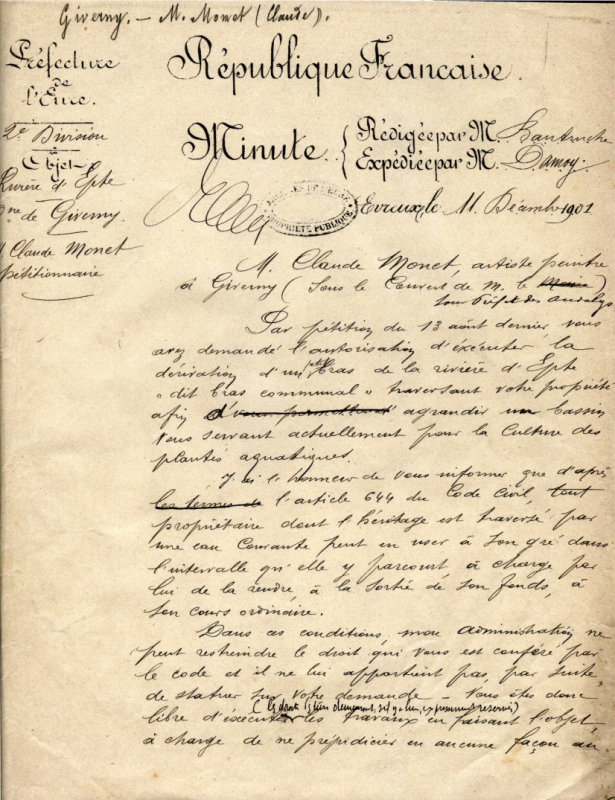 Giverny. — M. Monet (Claude).
Préfecture
de
l'Eure.
2e Division
Objet
Rivière d'Epte
Cne de Giverny
M. Claude Monet
pétitionnaire
République Française.
Minute { Rédigée par M.
Expédiée par M. Damoy.
PROPRIÉTÉ PUBLIQUE
Evreux, le 11 Décembre 1901
M. Claude Monet, artiste peintre
à Giverny (Sous le Couvert de M. le Maire)
Sous Préfet des Andelys
Par pétition du 13 août dernier, vous
avez demandé l'autorisation d'exécuter la
dérivation d'un petit bras de la rivière d'Epte
"dit bras communal" traversant votre propriété
afin d'vous permettant d'agrandir un bassin
vous servant actuellement pour la Culture des
plantes aquatiques.
J'ai l'honneur de vous informer que d'après
les termes de l'article 644 du Code Civil, tout
propriétaire dont l'héritage est traversé par
une eau Courante peut en user à son gré dans
l'intervalle qu'elle y parcourt à charge par
lui de la rendre, à la sortie de son fonds, à
son cours ordinaire.
Dans ces conditions, mon administration ne
peut restreindre le droit qui vous est conféré par
le code et il ne lui appartient pas, par suite,
de statuer sur votre demande — Vous êtes donc
(les droits des tiers demeurant, s'il y a lieu, expressément réservés)
libre d'exécuter les travaux en faisant l'objet,
à charge de ne préjudicier en aucune façon au